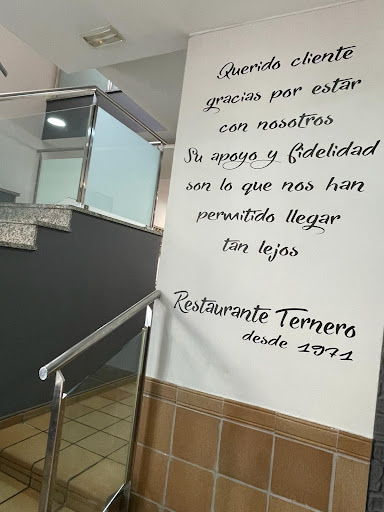 Querido cliente
gracias por estar
con nosotros
Su apoyo y fidelidad
son lo que nos han
permitido llegar
tan lejos
Restaurante Ternero
desde 1971